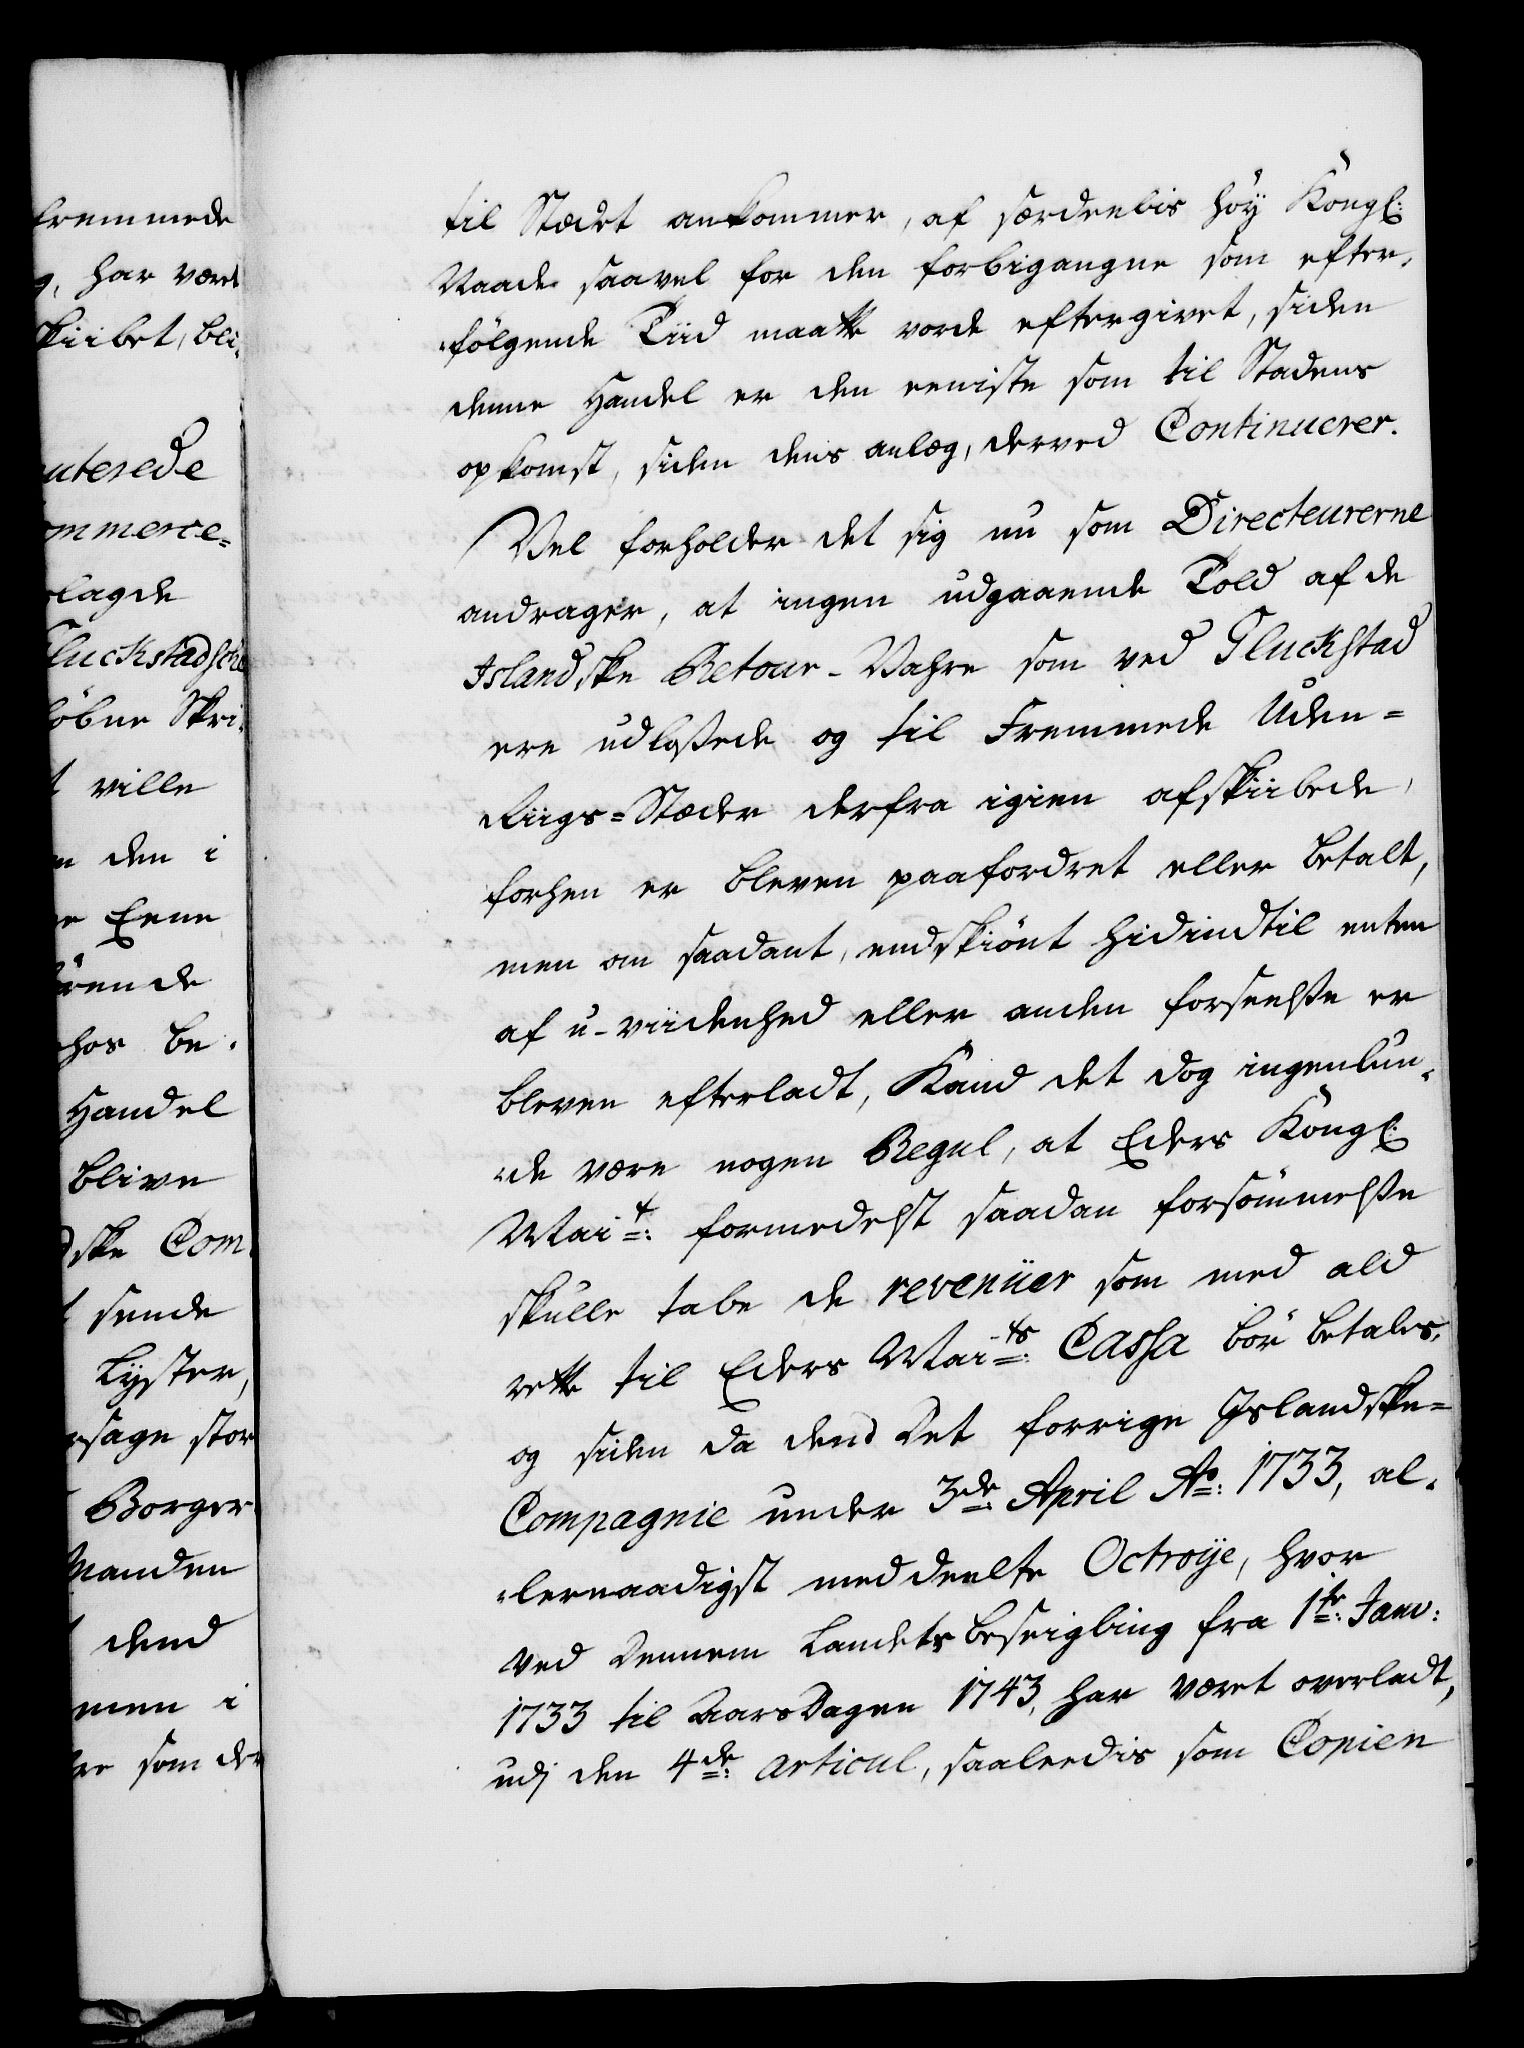 fremmede
g, har været
Skiibet, bli-
outerede
Commerce-
lagde
Gluckstadsche
løbne Skri-
t ville
den i
Eene
ørende
hos be-
Handel
blive
dske Com-
t sende
Lyster,
sage stor
Borger-
Manden
dend
men i
som der
til Stædet ankommer, af særdeelis høy Kongl:
Naade saavel for den forbigangne som efter-
følgende Tiid maatte vorde eftergivet, siden
denne Handel er den eeniste som til Stadens
opkomst, siden dens anlæg, derved Continuerer.
Vel forholder det sig nu som Directeurerne
andrager, at ingen udgaaende Told af de
Islandske Retour-Vahre som ved Gluckstad
ere udlossede og til Fremmede Uden-
Riigs-Stæder derfra igien afskiibede,
forhen er bleven paafordret eller betalt,
men om saadant, endskiønt hidindtil enten
af u-viidenhed eller anden forseelse er
bleven efterladt, Kand det dog ingenlun-
de være nogen Regul, at Eders Kongl:
Mait: formedelst saadan forsømmelse
skulle tabe de revenüer som med ald
rette til Eders Maits: Cassa bør betales,
og siden da dend Det forrige Islandske-
Compagnie under 3de: April Ao: 1733, al-
lernaadigst meddeelte Octroye, hvor
ved Dennem Landets beseigling fra 1te: Janv:
1733 til Aarsdagen 1743, har været overladt,
udj den 4de: articul, saaleedis som Copien